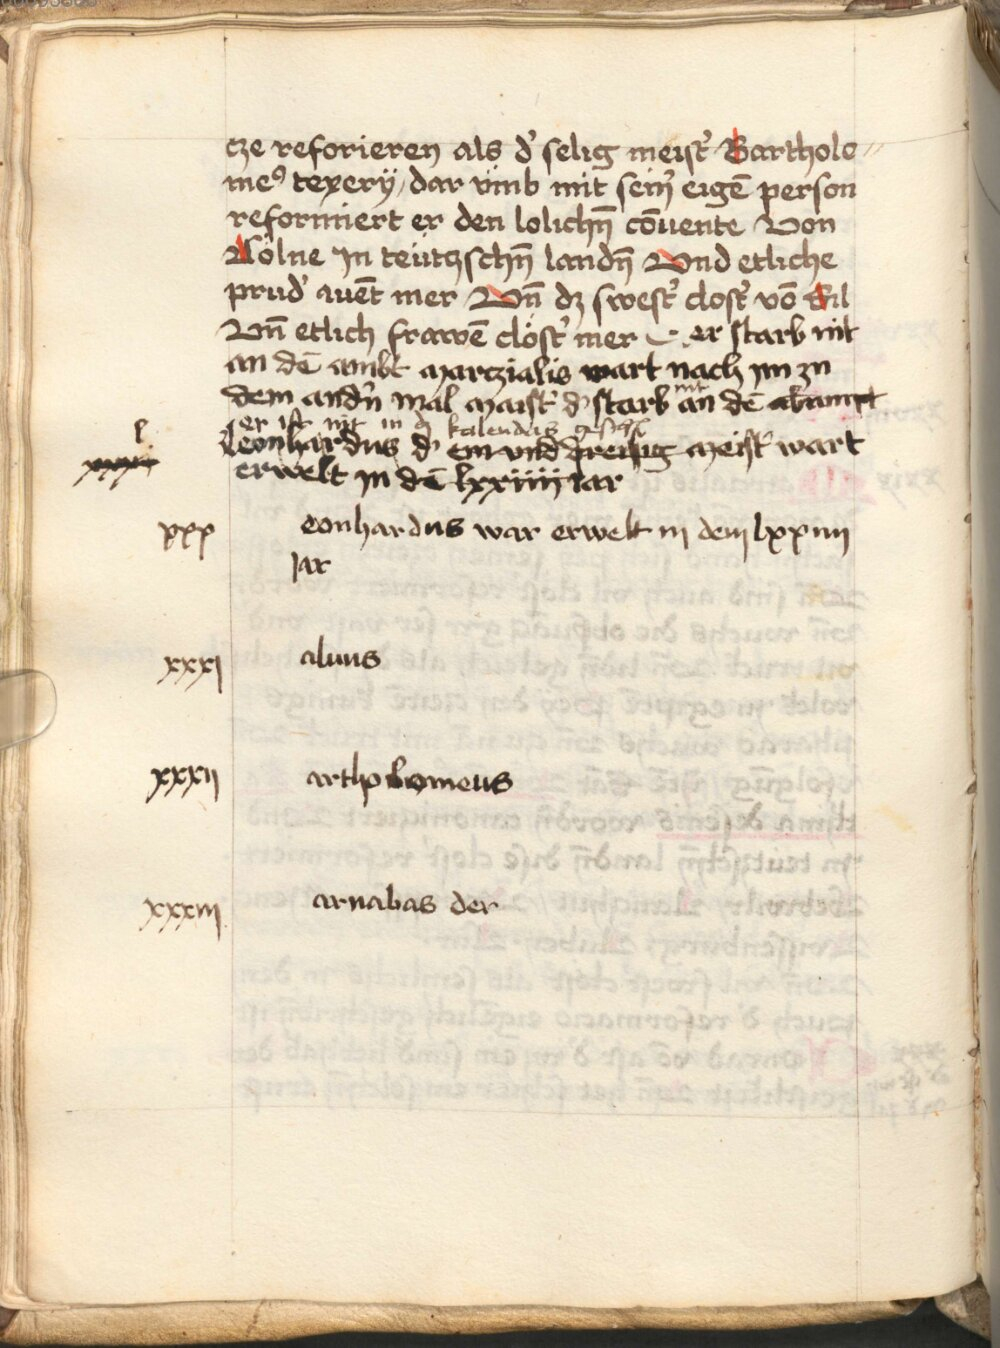 cze reforieren als d' selig meist' Barthole
me9 texerÿ / dar vmb mit sein' eigē person
reformiert er den lolichn̄ cōuente Von
Kölne Jn teützschn̄ landn̄ Vnd etliche
prud' auēt mer Vn̄ dz swest' clost' vō Sil
Vn̄ etlich frawē clöst' mer er starb nit
an dē ambt Marczialis wart nach im zu
dem andn̄ mal Maist' d' starb mit an dē
er ist nit in kalendas
Leonhardus d' ein vnd dreisig Meist' wart
xxxi
erwelt in dē lxxiiii iar
xxx eonhardus war erwelt in dem lxxiiii
Jar
xxxi aluus
xxxii artholomeus
xxxiii arnabas der